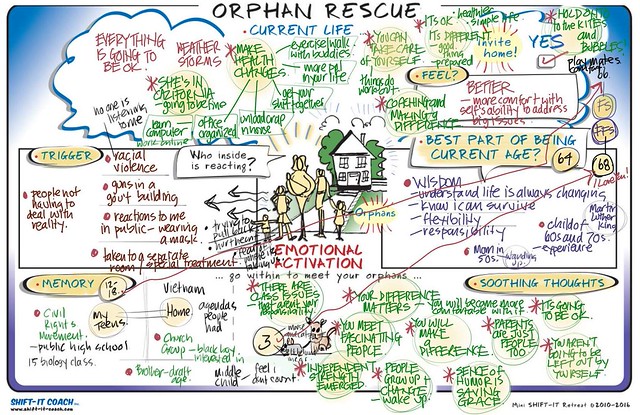 ORPHAN RESCUE
• CURRENT LIFE
EVERYTHING
IS GOING TO
BE OK.
WEATHER
STORMS
* MAKE
HEALTH
CHANGES
exercise/walk
with buddies.
- more put
in your life.
* SHE'S IN
CALIFORNIA
going to be fine
get your
shit together
learn
computer
work online
office
organized
unload crap
in monroe
* YOU CAN
TAKE CARE
OF YOURSELF.
things do
work out.
* COACHING and
MAKING a
DIFFERENCE
* IT'S OK.
IT'S
DIFFERENT
- healthier
- simple life
- good
living
- prepared
Invite
home!
YES
* HOLD ON TO
to the KITES
and
BUBBLES!
playmates
06
• FEEL?
BETTER
- more comfort with
self's ability to address
any issues.
FS
FFS
no one is
listening
to me
• TRIGGER
• people not
having to
deal with
reality.
• racial
violence
• guns in a
gov't building
• reactions to me
in public - wearing
a mask.
• taken to a separate
room / special treatment
Who inside
is reacting?
• trying to
pull back
hurt me
Orphans
EMOTIONAL
ACTIVATION
... go within to meet your orphans ...
• BEST PART OF BEING
CURRENT AGE?
64
68
I love
• WISDOM
- understand life is always changing
- know i can survive
- flexibility
- responsibility
• Mom in
50s.
• child of
60s and 70s.
experience
Martin
Luther
King
• MEMORY
12-
18.
My
Teens.
Home
Vietnam
agendas
people
had
• Civil
Rights
movement.
- public high school
15 biology class.
• Church
Group - black boy
interested in
• Brother - draft
age.
middle
child
- feel i
don't count.
3
* THERE ARE
CLASS ISSUES
that aren't your
responsibility.
* YOUR DIFFERENCE
MATTERS
- You will become more
comfortable with it.
* YOU MEET
FASCINATING
PEOPLE
* YOU WILL
MAKE
A
DIFFERENCE.
* INDEPENDENT
STRENGTH
EMERGED.
* PEOPLE
GROW UP +
CHANGE/
WAKE UP.
• SOOTHING THOUGHTS
* IT'S GOING
TO BE OK.
* PARENTS
ARE JUST
PEOPLE
TOO.
* YOU AREN'T
GOING to BE
LEFT OUT BY
YOURSELF
* SENSE of
HUMOR IS
SAVING
GRACE.
SHIFT-IT COACH inc.
www.shift-it-coach.com
Mini SHIFT-IT Retreat ©2010-2016